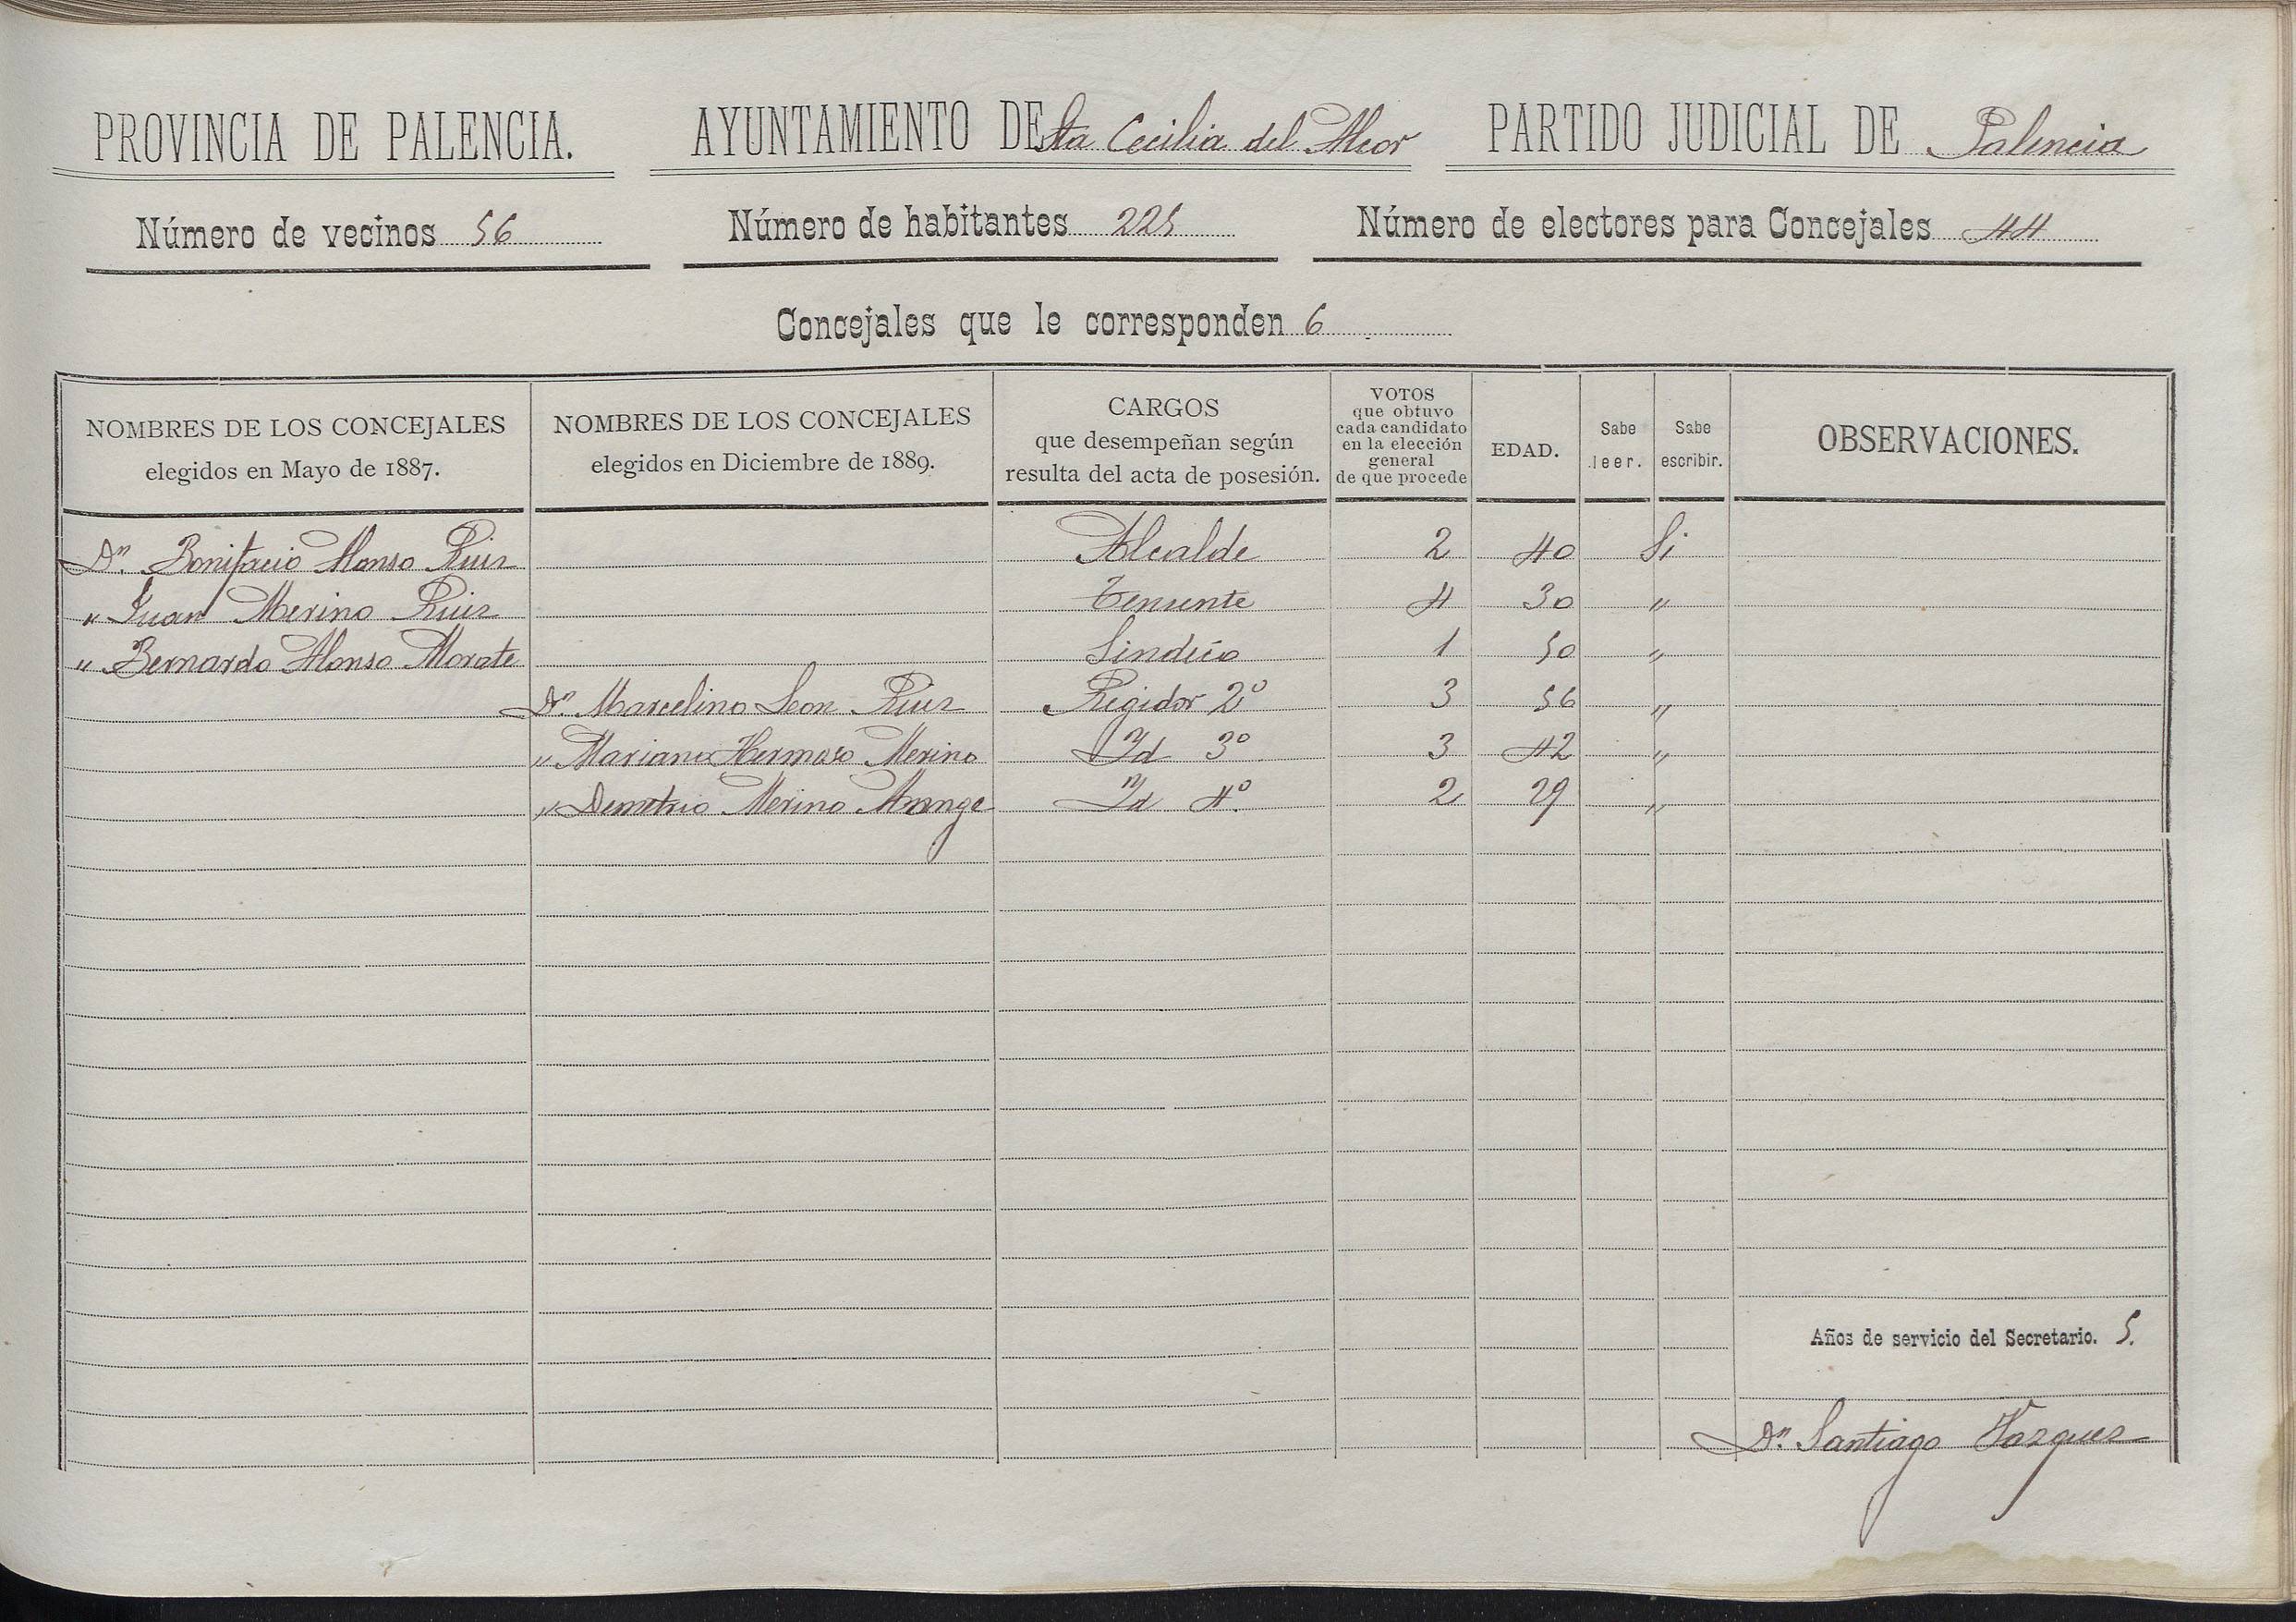 PROVINCIA DE PALENCIA. AYUNTAMIENTO DE Sta Cecilia del Alcor PARTIDO JUDICIAL DE Palencia
Número de vecinos 56 Número de habitantes 225 Número de electores para Concejales 44
Concejales que le corresponden 6
NOMBRES DE LOS CONCEJALES elegidos en Mayo de 1887. NOMBRES DE LOS CONCEJALES elegidos en Diciembre de 1889. CARGOS que desempeñan según resulta del acta de posesión. VOTOS que obtuvo cada candidato en la elección general de que procede EDAD. Sabe leer. Sabe escribir. OBSERVACIONES.
Dn. Bonifacio Alonso Ruiz Alcalde 2 40 Si
" Juan Merino Ruiz Teniente 4 30 "
" Bernardo Alonso Morate Sindico 1 50 "
Dn. Marcelino Leon Ruiz Regidor 2º 3 56 "
" Mariano Hermoso Merino Id 3º 3 42 "
" Demetrio Merino Id 4º 2 29 "
Años de servicio del Secretario. 5.
Dn. Santiago Vazquez